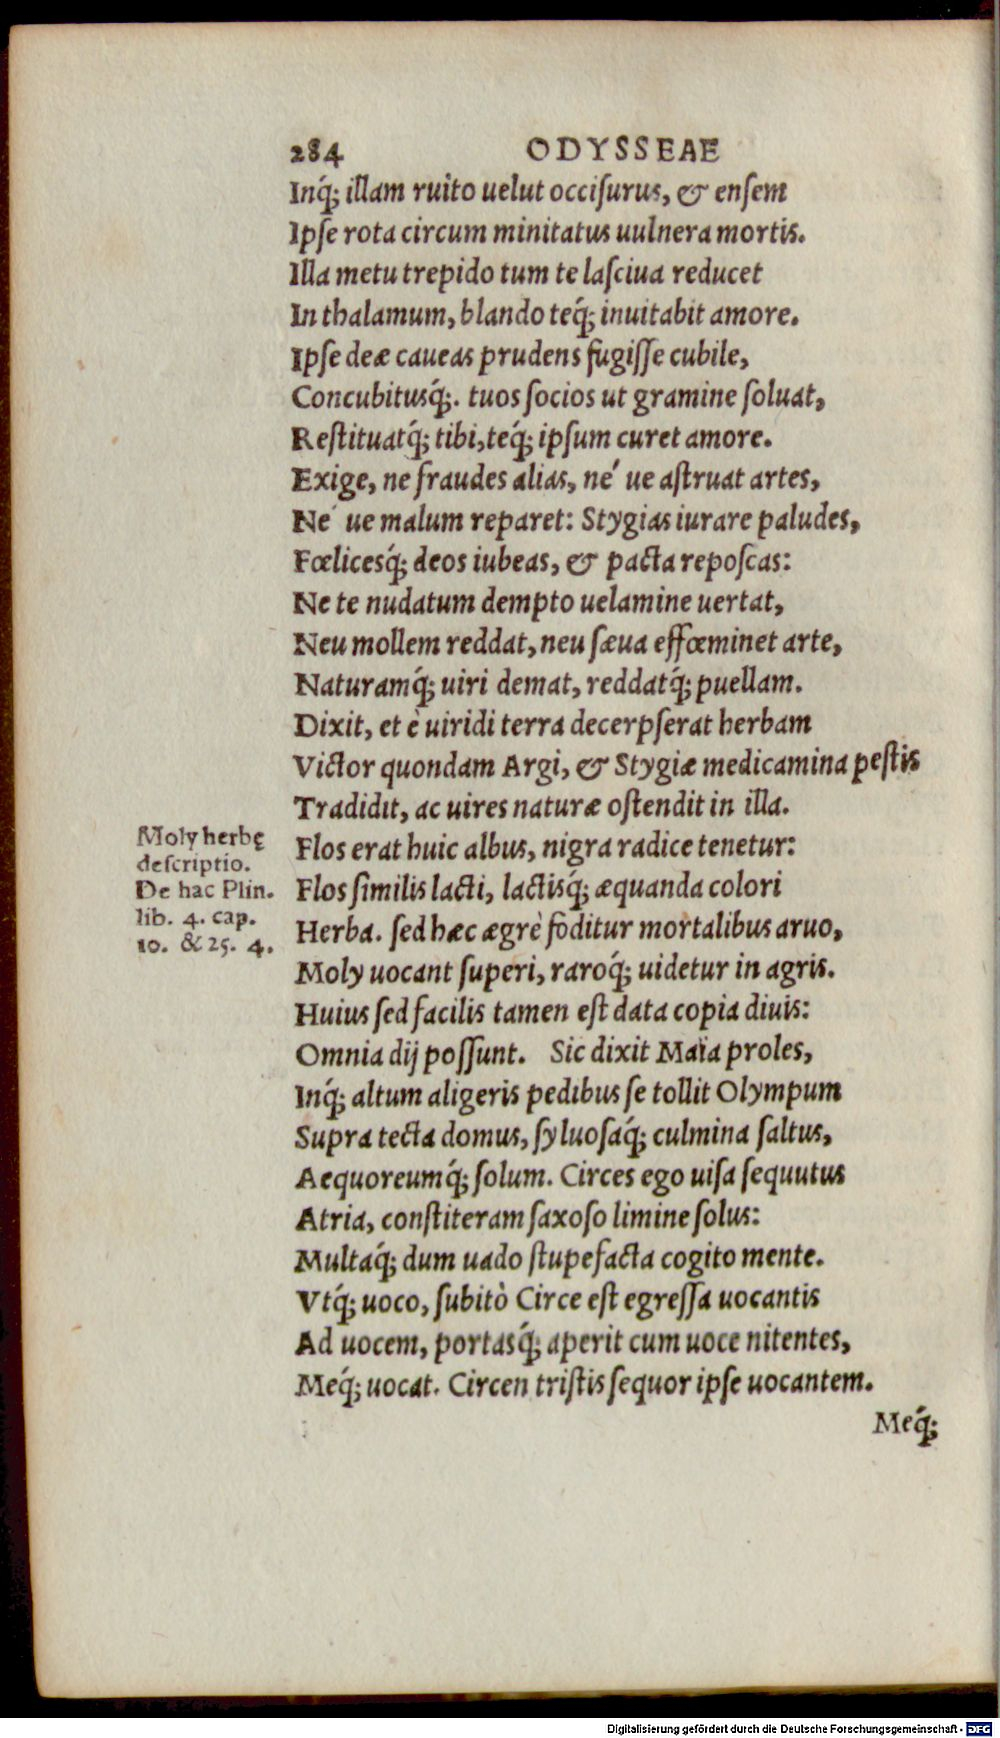 284 ODYSSEAE
Inq́; illam ruito uelut occiſurus, & enſem
Ipſe rota circum minitatus uulnera mortis.
Illa metu trepido tum te laſciua reducet
In thalamum, blando teq́; inuitabit amore.
Ipſe deæ caueas prudens fugiſſe cubile,
Concubitusq́;. tuos ſocios ut gramine ſoluat,
Reſtituatq́; tibi, teq́; ipſum curet amore.
Exige, ne fraudes alias, né ue aſtruat artes,
Né ue malum reparet: Stygias iurare paludes,
Fœlicesq́; deos iubeas, & pacta repoſcas:
Ne te nudatum dempto uelamine uertat,
Neu mollem reddat, neu ſæua effœminet arte,
Naturamq́; uiri demat, reddatq́; puellam.
Dixit, et è uiridi terra decerpſerat herbam
Victor quondam Argi, & Stygiæ medicamina peſtis
Tradidit, ac uires naturæ oſtendit in illa.
Moly herbę
deſcriptio.
De hac Plin.
lib. 4. cap.
10. & 25. 4.
Flos erat huic albus, nigra radice tenetur:
Flos ſimilis lacti, lactisq́; æquanda colori
Herba. ſed hæc ægrè foditur mortalibus aruo,
Moly uocant ſuperi, raroq́; uidetur in agris.
Huius ſed facilis tamen eſt data copia diuis:
Omnia dij poſſunt. Sic dixit Maïa proles,
Inq́; altum aligeris pedibus ſe tollit Olympum
Supra tecta domus, ſyluoſaq́; culmina ſaltus,
Aequoreumq́; ſolum. Circes ego uiſa ſequutus
Atria, conſtiteram ſaxoſo limine ſolus:
Multaq́; dum uado ſtupefacta cogito mente.
Vtq́; uoco, ſubitò Circe eſt egreſſa uocantis
Ad uocem, portasq́; aperit cum uoce nitentes,
Meq́; uocat. Circen triſtis ſequor ipſe uocantem.
Meq́;
Digitalisierung gefördert durch die Deutsche Forschungsgemeinschaft - DFG